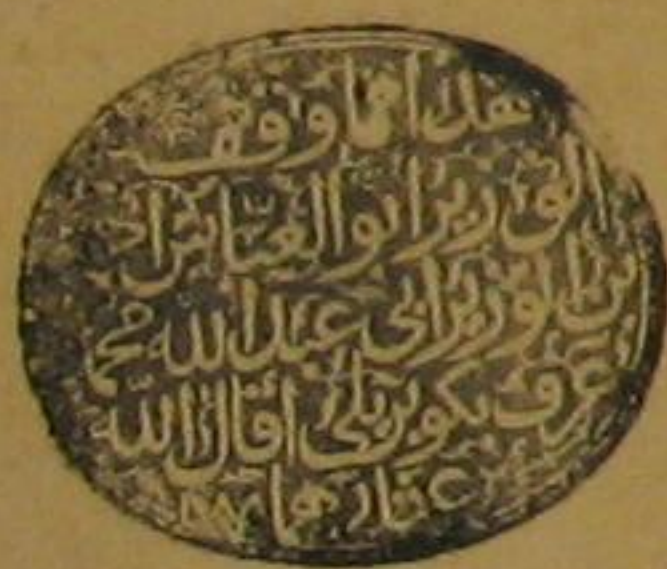 هذا مما وقفه
الوزير ابو العباس احمد
ابن الوزير ابي عبد الله محمد
عرف بكوبريلي أقال الله
عثارهما